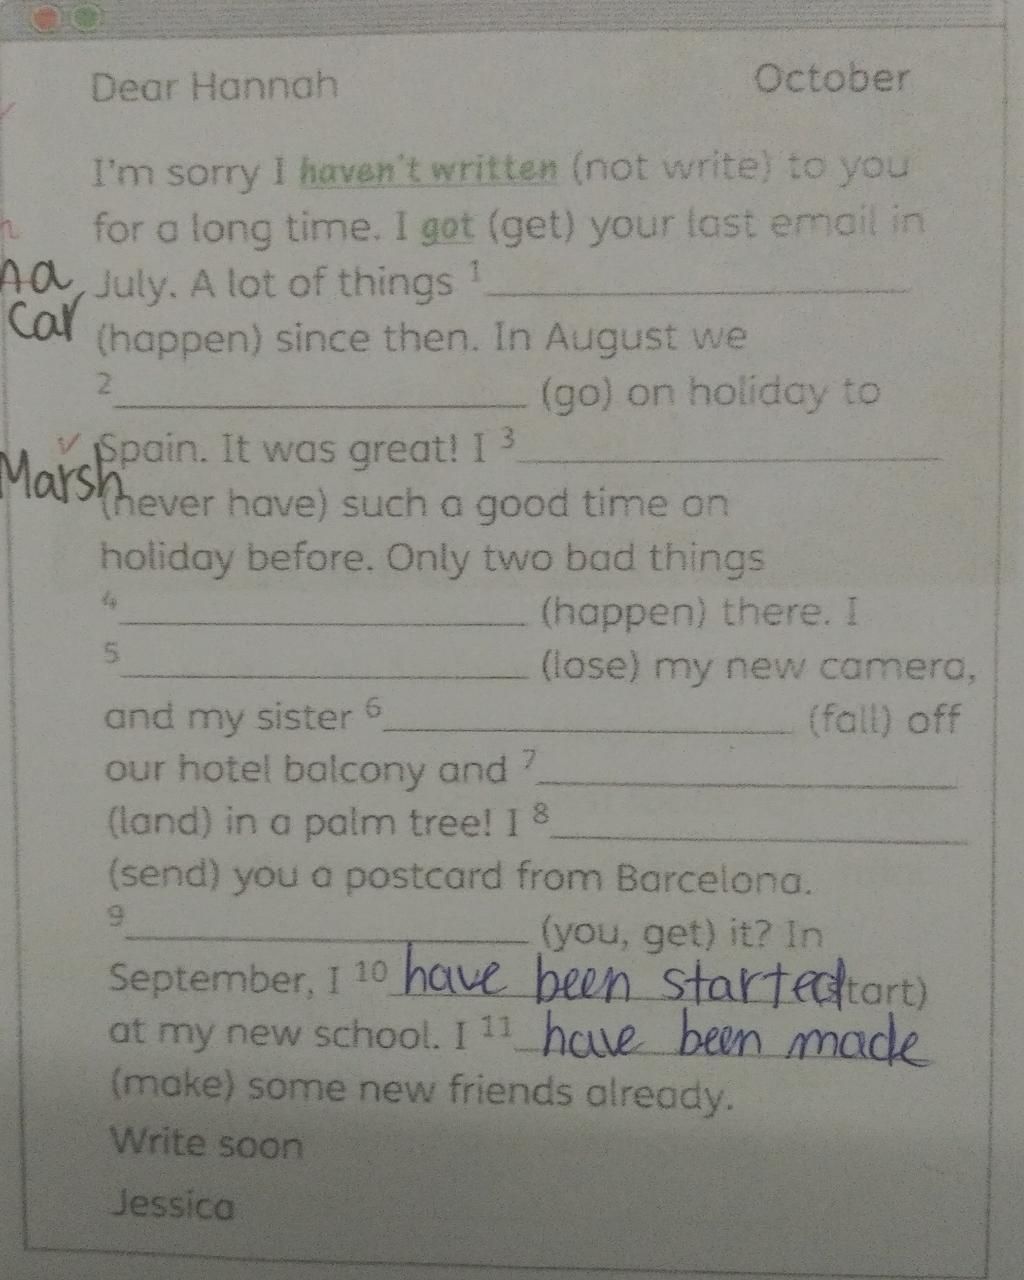 Dear Hannah October
I'm sorry I haven't written (not write) to you
for a long time. I got (get) your last email in
July. A lot of things 1
car
(happen) since then. In August we
2 (go) on holiday to
Spain. It was great! I 3
Marsh
(never have) such a good time on
holiday before. Only two bad things
4 (happen) there. I
5 (lose) my new camera,
and my sister 6 (fall) off
our hotel balcony and 7
(land) in a palm tree! I 8
(send) you a postcard from Barcelona.
9 (you, get) it? In
September, I 10 have been started tart)
at my new school. I 11 have been made
(make) some new friends already.
Write soon
Jessica